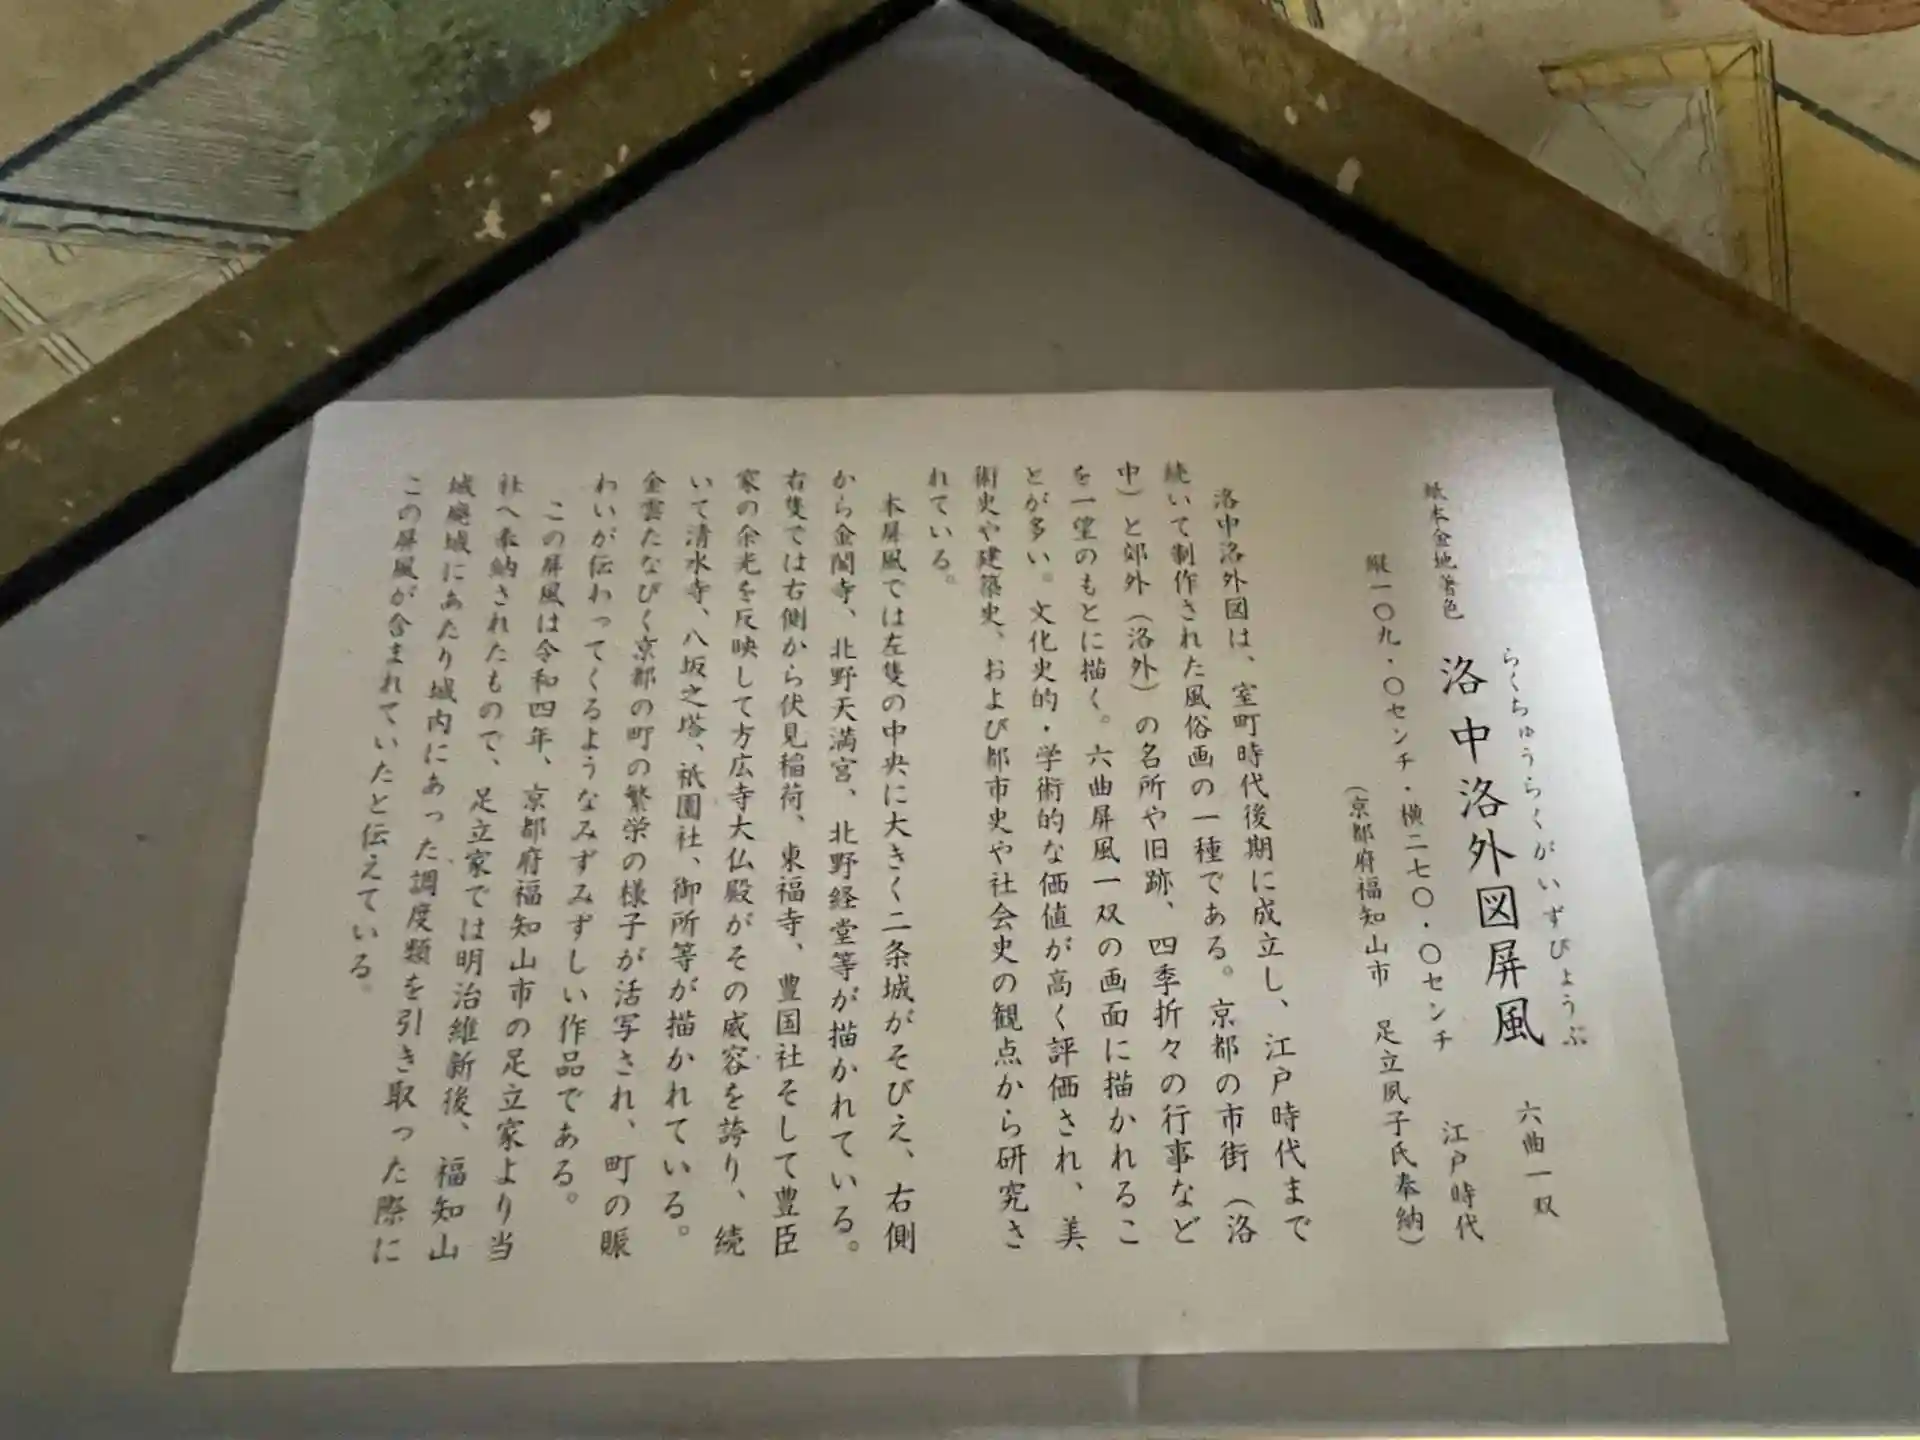 らくちゅうらくがいずびょうぶ
紙本金地著色　洛中洛外図屏風　六曲一双
縦一〇九・〇センチ・横二七〇・〇センチ　江戸時代
（京都府福知山市　足立夙子氏奉納）
洛中洛外図は、室町時代後期に成立し、江戸時代まで
続いて制作された風俗画の一種である。京都の市街（洛
中）と郊外（洛外）の名所や旧跡、四季折々の行事など
を一望のもとに描く。六曲屏風一双の画面に描かれるこ
とが多い。文化史的・学術的な価値が高く評価され、美
術史や建築史、および都市史や社会史の観点から研究さ
れている。
本屏風では左隻の中央に大きく二条城がそびえ、右側
から金閣寺、北野天満宮、北野経堂等が描かれている。
右隻では右側から伏見稲荷、東福寺、豊国社そして豊臣
家の余光を反映して方広寺大仏殿がその威容を誇り、続
いて清水寺、八坂之塔、祇園社、御所等が描かれている。
金雲たなびく京都の町の繁栄の様子が活写され、町の賑
わいが伝わってくるようなみずみずしい作品である。
この屏風は令和四年、京都府福知山市の足立家より当
社へ奉納されたもので、足立家では明治維新後、福知山
城廃城にあたり城内にあった調度類を引き取った際に
この屏風が含まれていたと伝えている。